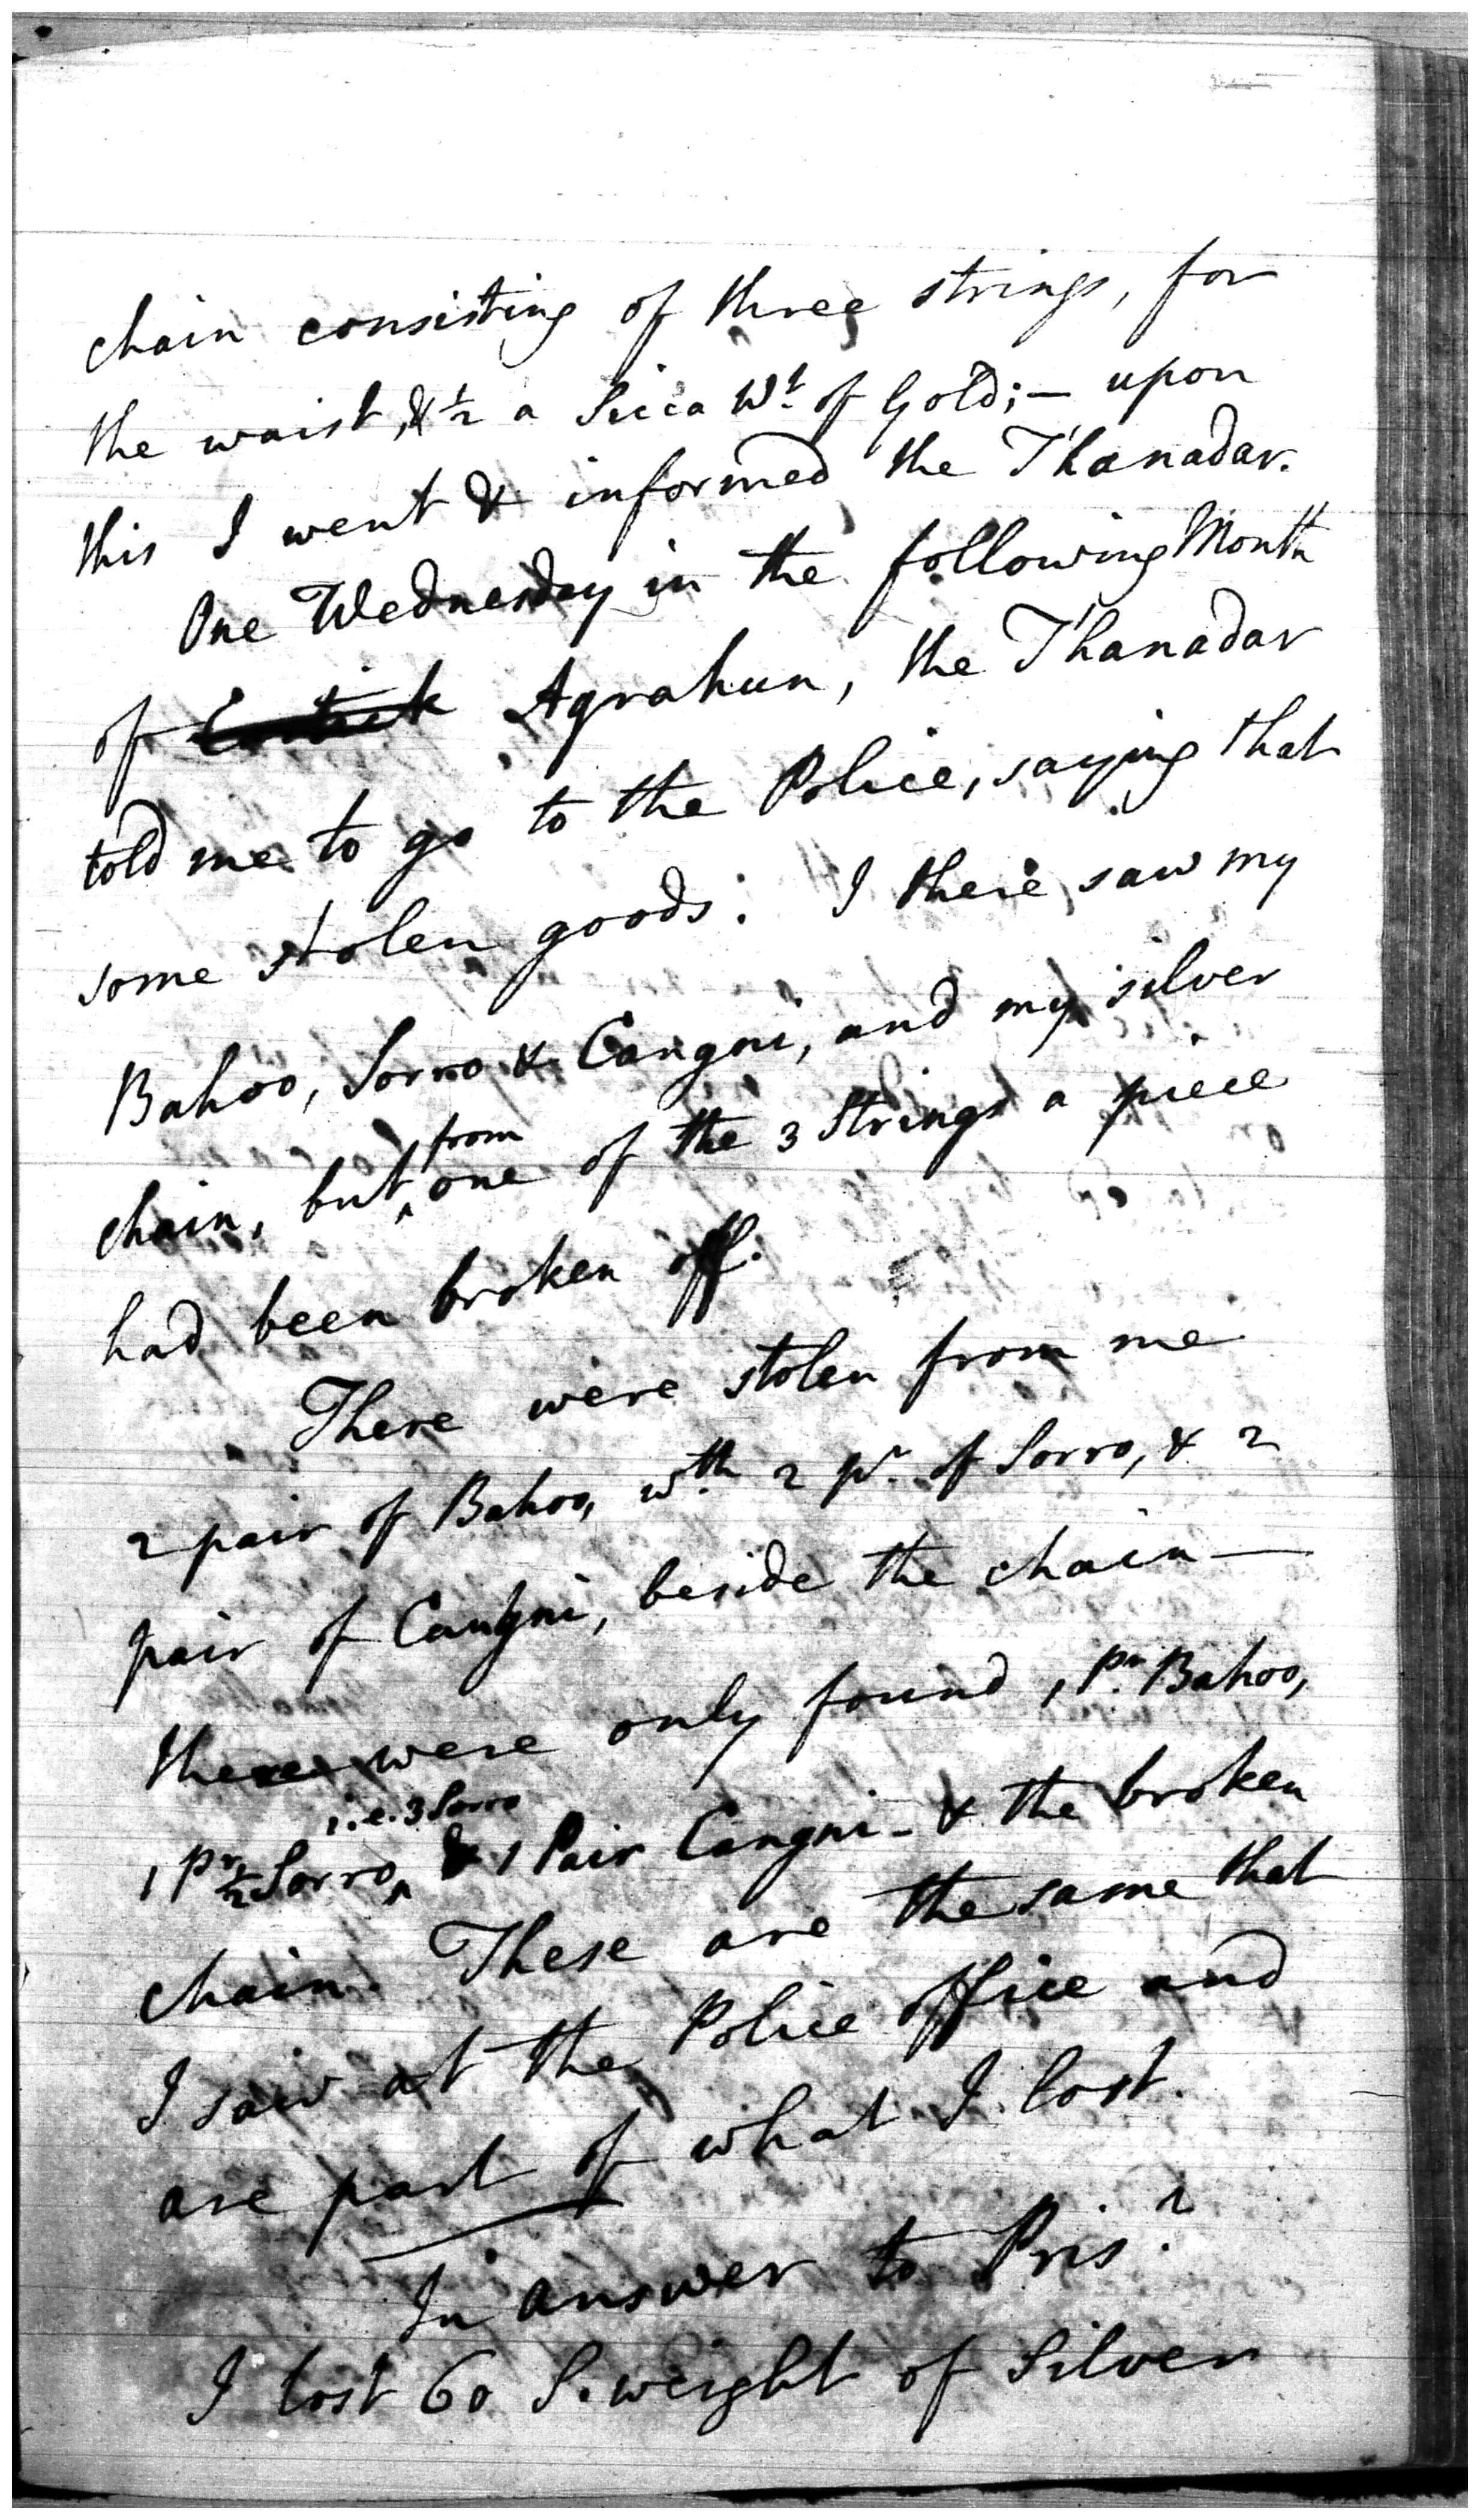 chain consisting of three strings, for
the waist, & ½ a Sicca Wt. of Gold; — upon
this I went & informed the Thanadar.
One Wednesday in the following Month
of Agrahun, the Thanadar
told me to go to the Police, saying that
some stolen goods: I there saw my
Bahoo, Sorro & Cangni, and my silver
chain, but from one of the 3 Strings a piece
had been broken off.
There were stolen from me
2 pair of Bahoo, wth. 2 pr. of Sorro, & 2
pair of Cangni, beside the chain —
there were only found 1 Pr. Bahoo,
i.e. 3 Sorro
1 Pr ½ Sorro & 1 Pair Cangni - & the broken
chain. These are the same that
I saw at the Police office and
are part of what I lost.
In answer to Prisr.
I lost 60 S. weight of Silver